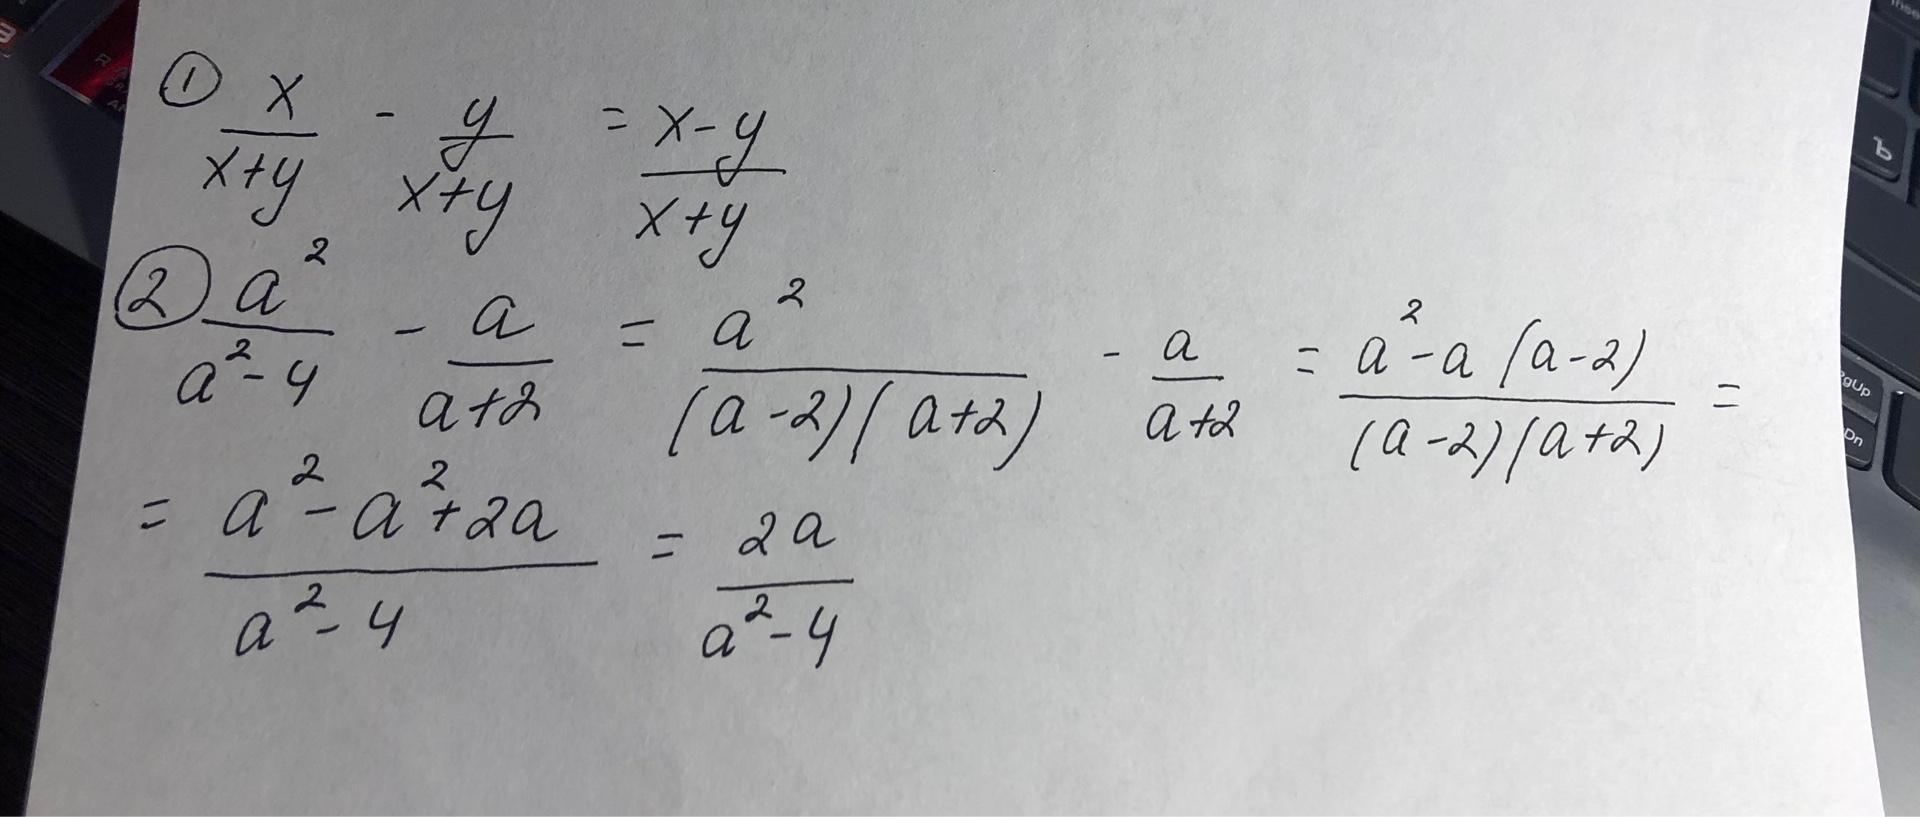 ① x/(x+y) - y/(x+y) = (x-y)/(x+y)
② a²/(a²-4) - a/(a+2) = a²/((a-2)(a+2)) - a/(a+2) = (a²-a(a-2))/((a-2)(a+2)) =
= (a²-a²+2a)/(a²-4) = 2a/(a²-4)
Ъ
PgUp
Dn